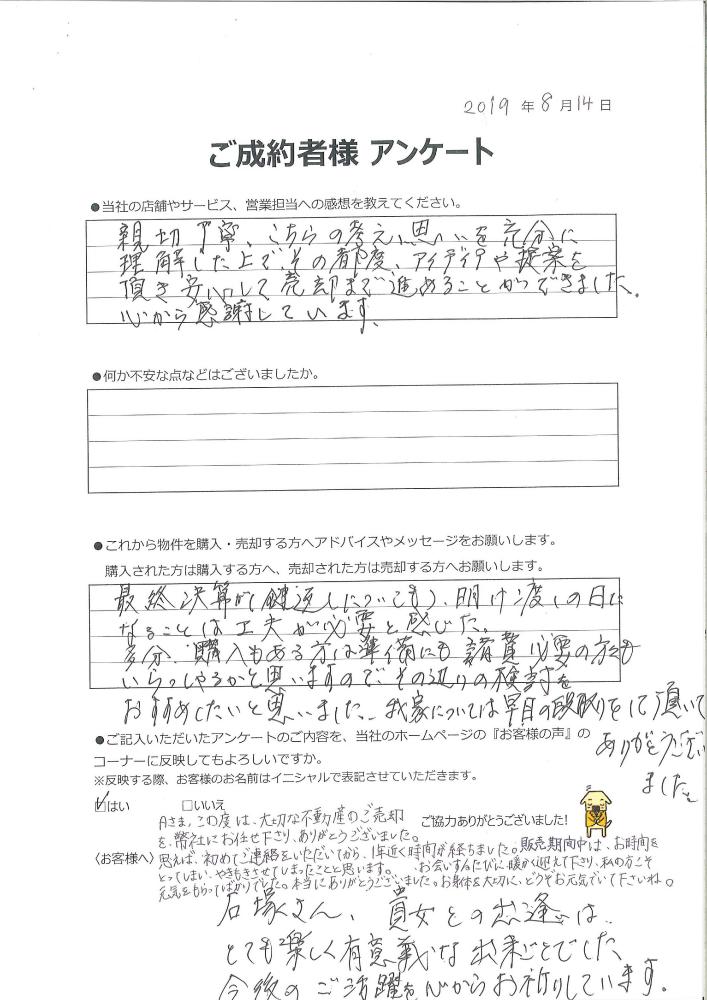 2019 年 8 月 14 日
ご成約者様 アンケート
●当社の店舗やサービス、営業担当への感想を教えてください。
親切丁寧、こちらの考え、思いを充分に
理解した上で、その都度、アイディアや提案を
頂き安心して売却まで進めることができました。
心から感謝しています。
●何か不安な点などはございましたか。
●これから物件を購入・売却する方へアドバイスやメッセージをお願いします。
購入された方は購入する方へ、売却された方は売却する方へお願いします。
最終決算が(鍵渡しについても)、明け渡しの日に
なることは工夫が必要と感じた。
多分、購入もある方は準備にも諸費必要の方も
いらっしゃるかと思いますので、その辺りの検討を
おすすめしたいと思いました。我家については早目の段取りをして頂いて
ありがとうござい
ました。
●ご記入いただいたアンケートのご内容を、当社のホームページの『お客様の声』の
コーナーに反映してもよろしいですか。
※反映する際、お客様のお名前はイニシャルで表記させていただきます。
☑はい □いいえ
ご協力ありがとうございました!
Aさま、この度は、大切な不動産のご売却
を、弊社にお任せ下さり、ありがとうございました。
〈お客様へ〉思えば、初めてご連絡をいただいてから、1年近く時間が経ちました。販売期間中は、お時間を
とってしまい、やきもきさせてしまったことと思います。お会いするたびに、暖かく迎えて下さり、私の方こそ
元気をもらってばかりでした。本当にありがとうございました。お身体を大切に、どうぞお元気でいて下さいね。
石塚さん、貴女との出逢いは、
とても楽しく有意義な出来ごとでした
今後のご活躍を心からお祈りしています。